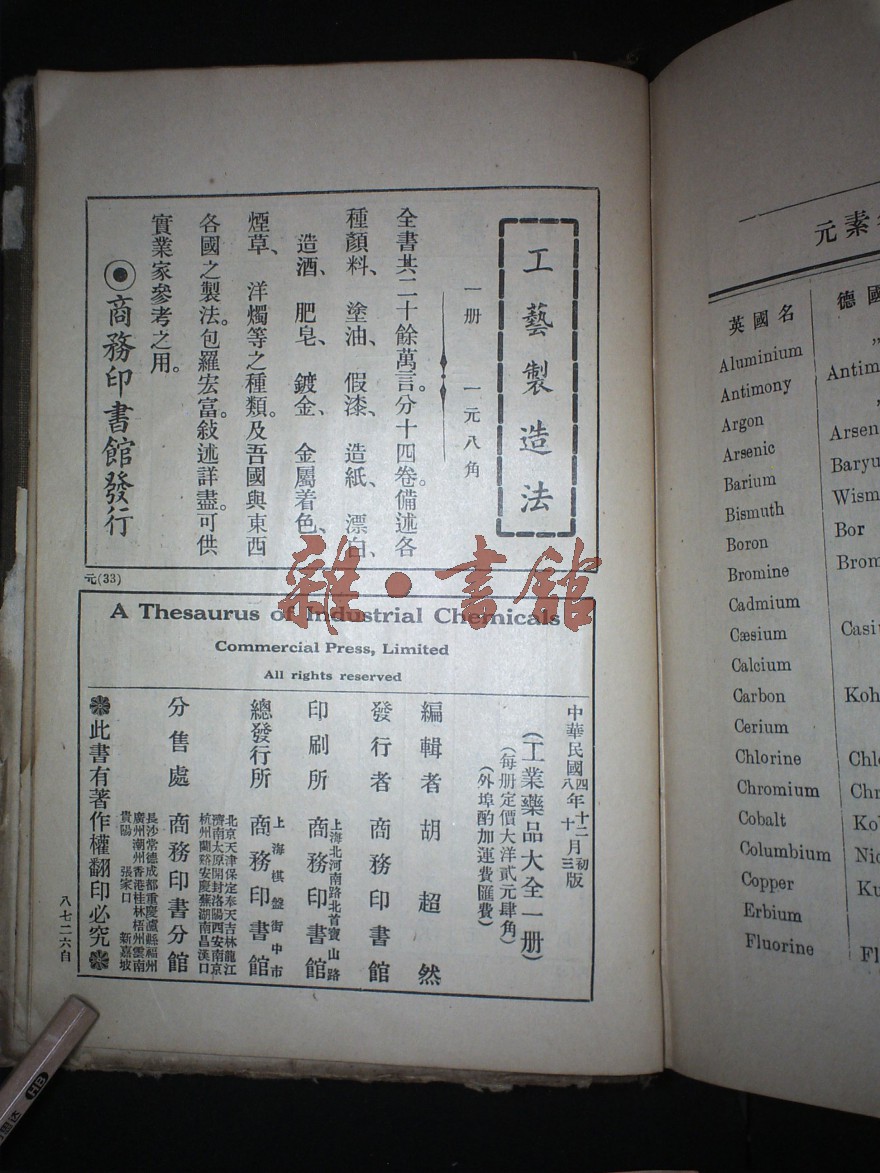 工藝製造法
一册 一元八角
全書共二十餘萬言。分十四卷。備述各
種顏料、塗油、假漆、造紙、漂白、
造酒、肥皂、鍍金、金屬着色、
煙草、洋燭等之種類。及吾國與東西
各國之製法。包羅宏富。敍述詳盡。可供
實業家參考之用。
商務印書館發行
元(33)
雜·書館
A Thesaurus of Industrial Chemicals
Commercial Press, Limited
All rights reserved
中華民國四年十二月初版
八 十 三
(工業藥品大全一册)
(每册定價大洋貳元肆角)
(外埠酌加運費匯費)
編輯者 胡超然
發行者 商務印書館
印刷所 上海北河南路北首寶山路 商務印書館
總發行所 上海棋盤街中市 商務印書館
分售處 商務印書分館
北京天津保定奉天吉林龍江
濟南太原開封洛陽西安南京
杭州蘭谿安慶蕪湖南昌漢口
長沙常德成都重慶瀘縣福州
廣州潮州香港桂林梧州雲南
貴陽 張家口 新嘉坡
此書有著作權翻印必究
八七二六自
元素
英國名 德國
Aluminium „
Antimony Antim
Argon „
Arsenic Arsen
Barium Baryu
Bismuth Wism
Boron Bor
Bromine Brom
Cadmium
Cæsium Casi
Calcium
Carbon Koh
Cerium
Chlorine Chl
Chromium Chr
Cobalt Ko
Columbium Nio
Copper Ku
Erbium
Fluorine Fl
HB